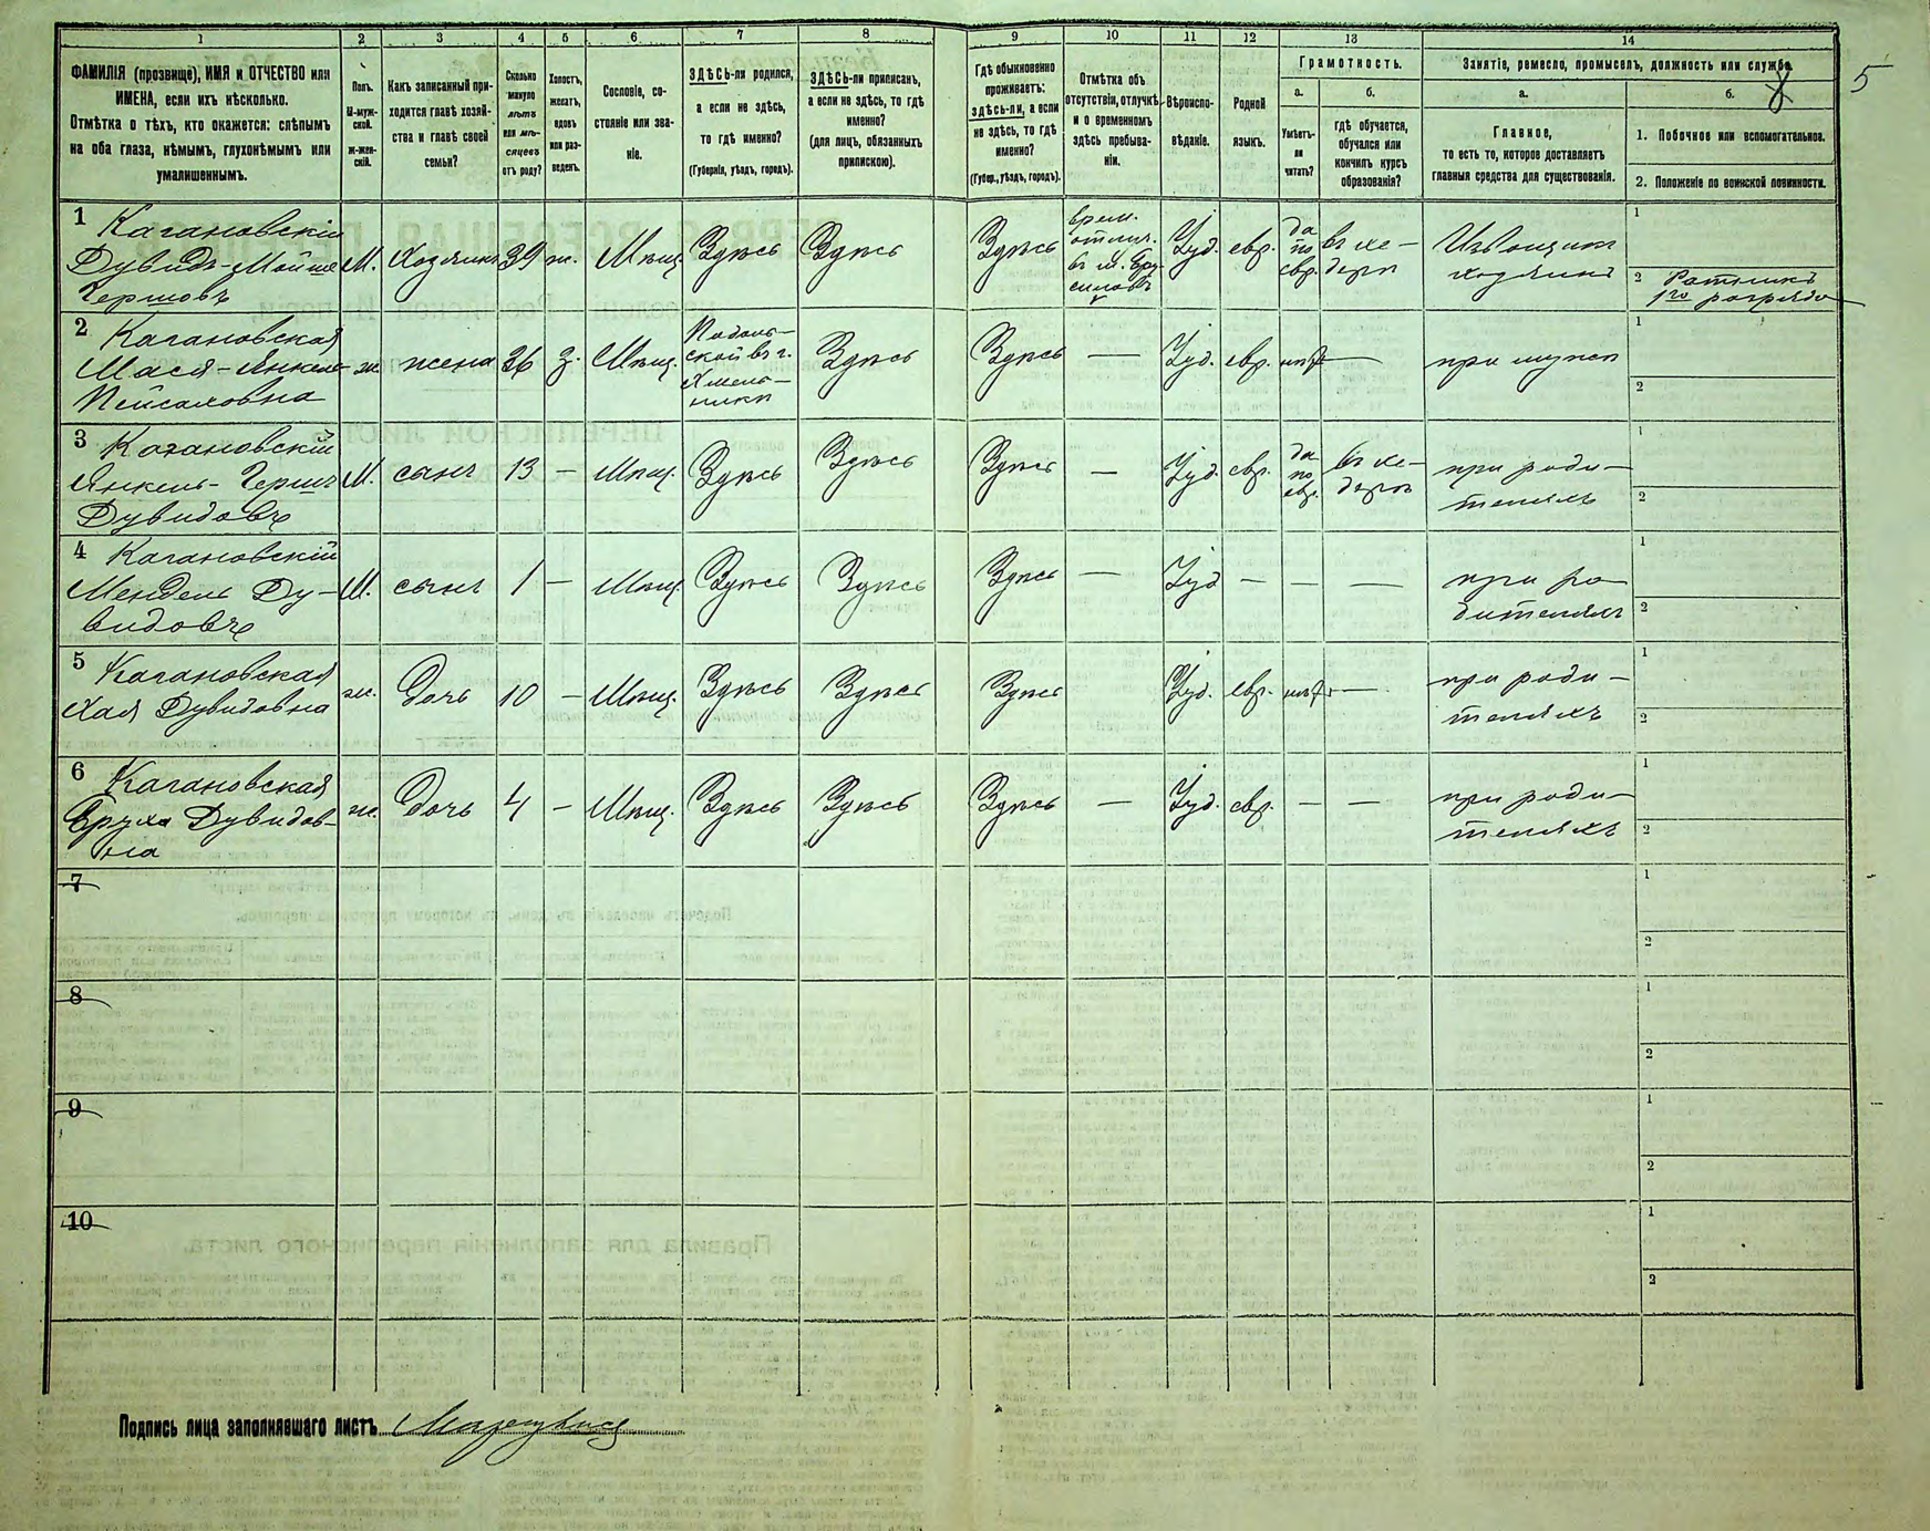 1 2 3 4 5 6 7 8 9 10 11 12 13 14
ФАМИЛІЯ (прозвище), ИМЯ и ОТЧЕСТВО или
ИМЕНА, если ихъ нѣсколько.
Отмѣтка о тѣхъ, кто окажется: слѣпымъ
на оба глаза, нѣмымъ, глухонѣмымъ или
умалишеннымъ.
Полъ.
М-муж-
ской.
Ж-жен-
скій.
Какъ записанный при-
ходится главѣ хозяй-
ства и главѣ своей
семьи?
Сколько
минуло
лѣтъ
или мѣ-
сяцевъ
отъ роду?
Холостъ,
женатъ,
вдовъ
или раз-
веденъ.
Сословіе, со-
стояніе или зва-
ніе.
ЗДѢСЬ-ли родился,
а если не здѣсь,
то гдѣ именно?
(Губернія, уѣздъ, городъ).
ЗДѢСЬ-ли приписанъ,
а если не здѣсь, то гдѣ
именно?
(для лицъ, обязанныхъ
припискою).
Гдѣ обыкновенно
проживаетъ:
здѣсь-ли, а если
не здѣсь, то гдѣ
именно?
(Губер., уѣздъ, городъ).
Отмѣтка объ
отсутствіи, отлучкѣ
и о временномъ
здѣсь пребыва-
ніи.
Вѣроиспо-
вѣданіе.
Родной
языкъ.
Грамотность.
а.
Умѣетъ-
ли
читать?
б.
гдѣ обучается,
обучался или
кончилъ курсъ
образованія?
Занятіе, ремесло, промыселъ, должность или служба.
а.
Главное,
то есть то, которое доставляетъ
главныя средства для существованія.
б.
1. Побочное или вспомогательное.
2. Положеніе по воинской повинности.
5
1 Кагановскій
Дувидъ-Мойше
Гершовъ
М. Хозяинъ 39 ж. Мѣщ. Здѣсь Здѣсь Здѣсь
врем.
отлуч.
въ м.
Іуд. евр.
да
по
евр.
въ хе-
дерѣ
Извощикъ
хозяинъ
1
2 Ратникъ
1го разряда
2 Кагановская
Мася-Янкель
Пейсаховна
ж. жена 36 з. Мѣщ.
Подоль-
ской въ г.
Хмель-
никѣ
Здѣсь Здѣсь — Іуд. евр. нѣтъ —
при мужѣ
1
2
3 Кагановскій
Янкель-Гершъ
Дувидовъ
М. сынъ 13 — Мѣщ. Здѣсь Здѣсь Здѣсь — Іуд. евр.
да
по
евр.
въ хе-
дерѣ
при роди-
теляхъ
1
2
4 Кагановскій
Мендель Ду-
видовъ
М. сынъ 1 — Мѣщ. Здѣсь Здѣсь Здѣсь — Іуд — — —
при ро-
дителяхъ
1
2
5 Кагановская
Хая Дувидовна
ж. Дочь 10 — Мѣщ. Здѣсь Здѣсь Здѣсь Іуд. евр. нѣтъ —
при роди-
теляхъ
1
2
6 Кагановская
Бруха Дувидов-
на
ж. Дочь 4 — Мѣщ. Здѣсь Здѣсь Здѣсь — Іуд. евр. — —
при роди-
теляхъ
1
2
7
1
2
8
1
2
9
1
2
10
1
2
Подпись лица заполнявшаго листъ